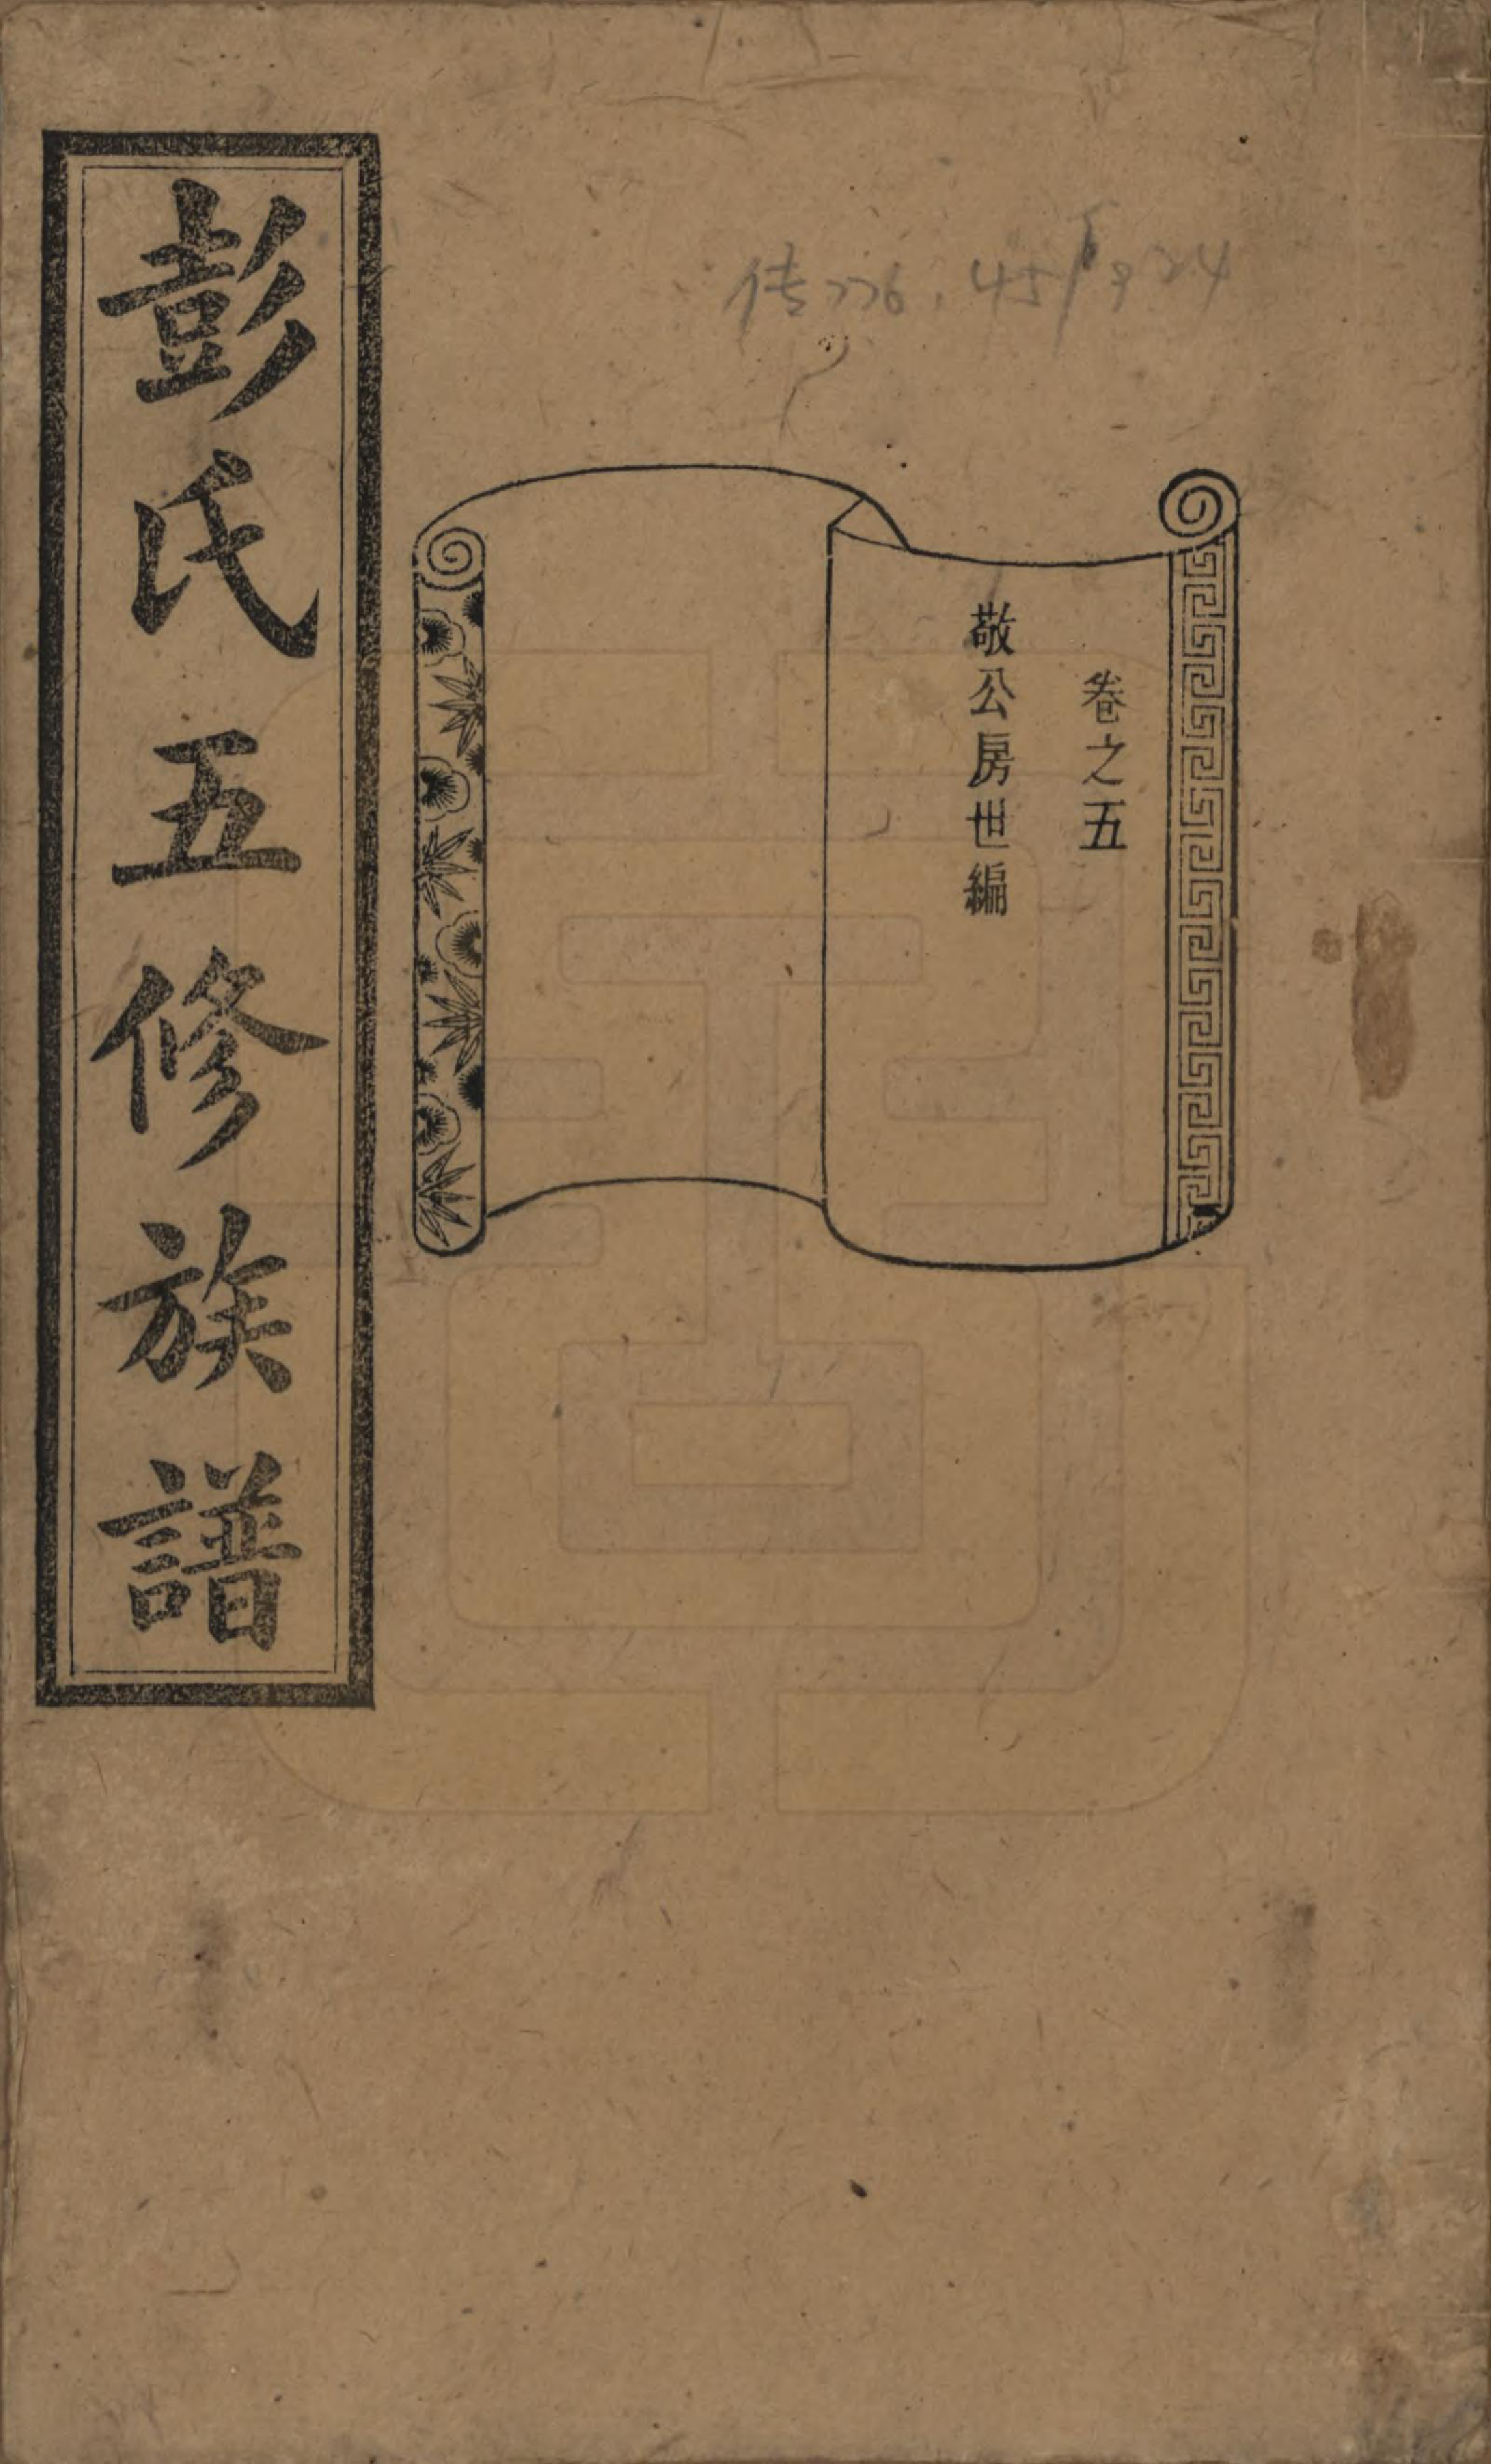 传776.45/924
卷之五
敬公房世編
彭氏五修族譜